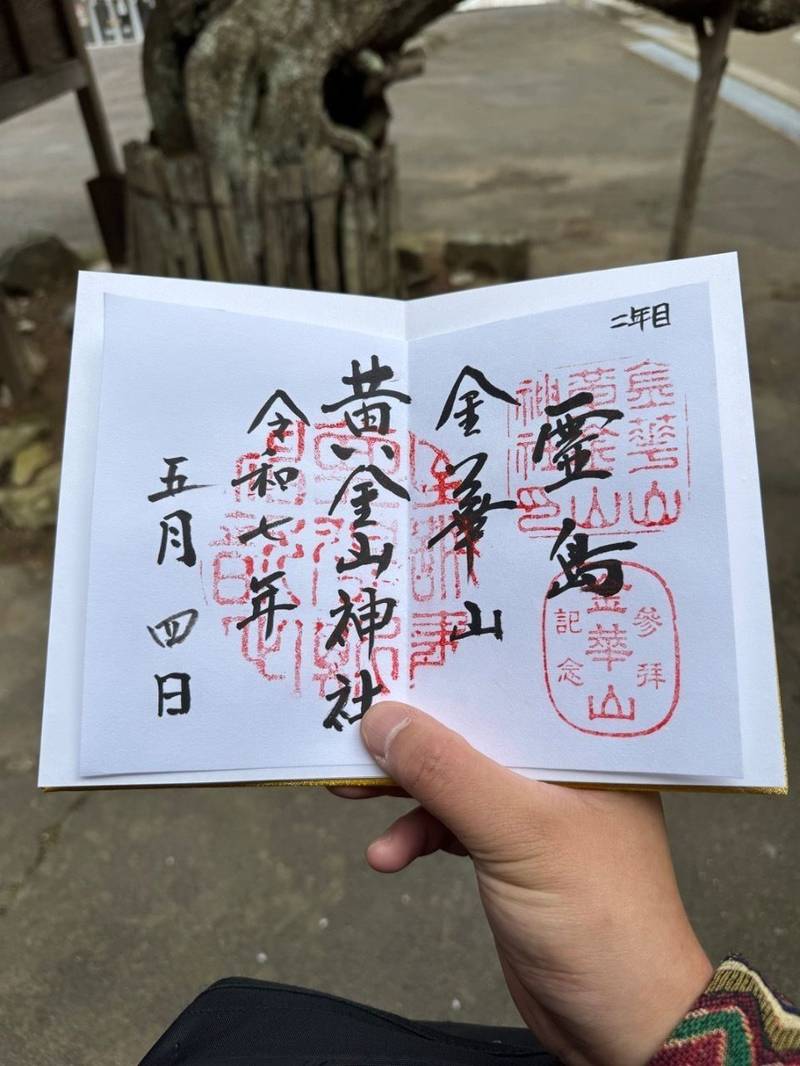 二年目
霊島
金華山
黄金山神社
令和七年
五月四日
金華山
黄金山
神社印
參拜
金華山
記念